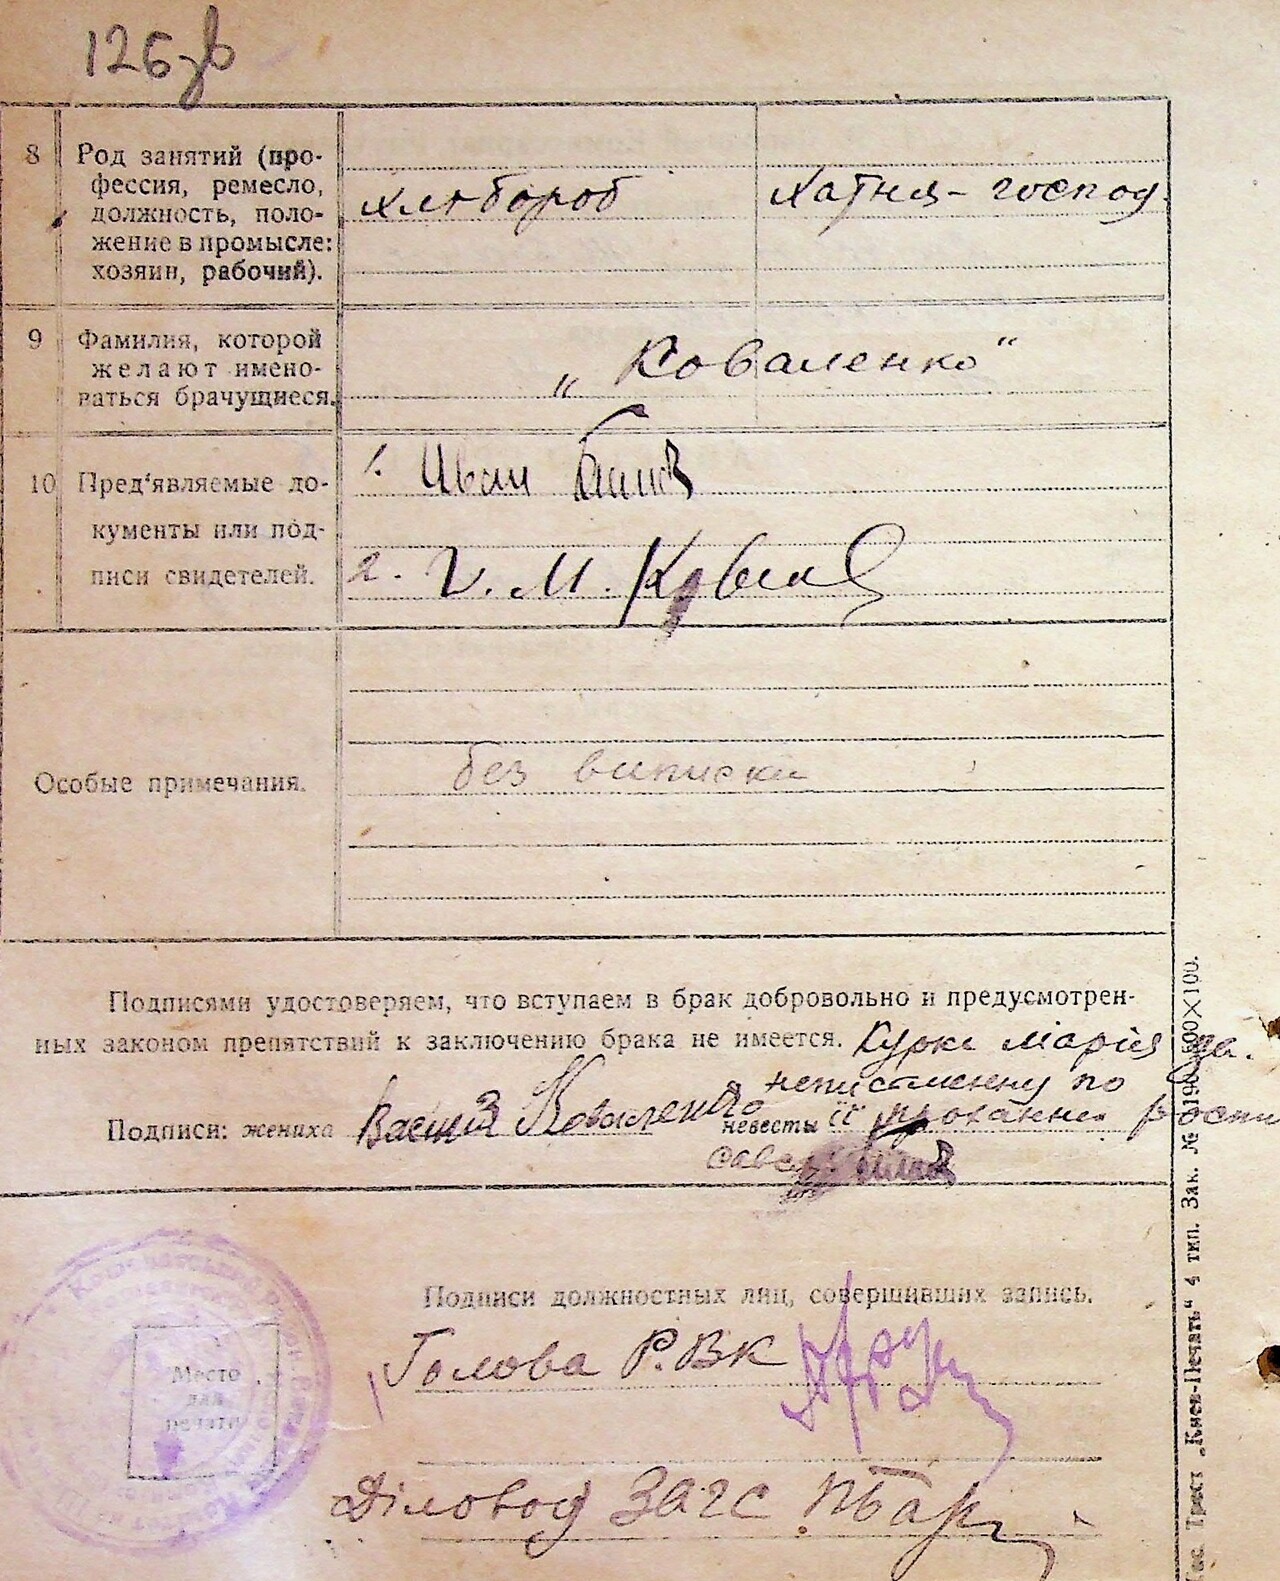 126 зв
8 Род занятий (про-
фессия, ремесло,
должность, поло-
жение в промысле:
хозяин, рабочий).
хлібороб
Хатня - господ.
9 Фамилия, которой
желают имено-
ваться брачущиеся.
„Коваленко“
10 Пред‘являемые до-
кументы или под-
писи свидетелей.
1. Иван
2. М.
Особые примечания.
без виписки
Подписями удостоверяем, что вступаем в брак добровольно и предусмотрен-
ных законом препятствий к заключению брака не имеется. Марія за.
неписьменну по
Подписи: жениха Василь Коваленко невесты її прохання
Подписи должностных лиц, совершивших запись.
Место
для
печати
Голова Р.В.К
Діловод ЗАГС
Гос. Трест „Киев-Печать“ 4 тип. Зак. № 600×100.